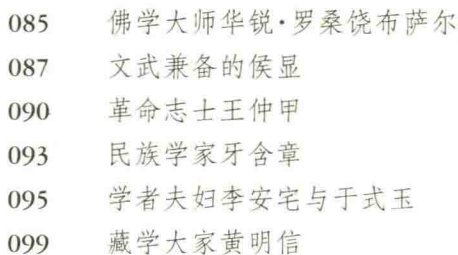 085 佛学大师华锐·罗桑饶布萨尔
087 文武兼备的侯显
090 革命志士王仲甲
093 民族学家牙含章
095 学者夫妇李安宅与于式玉
099 藏学大家黄明信